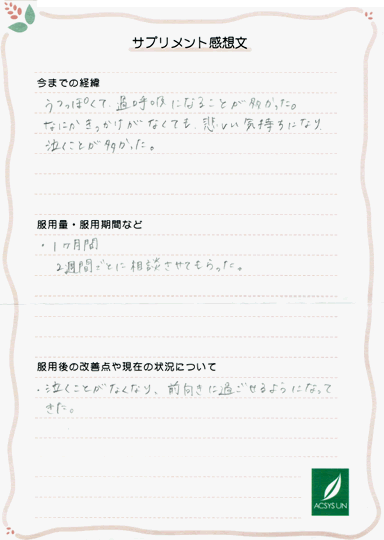 サプリメント感想文
今までの経緯
うつっぽくて、過呼吸になることが多かった。
なにかきっかけがなくても、悲しい気持ちになり、
泣くことが多かった。
服用量・服用期間など
・1ヶ月間
2週間ごとに相談させてもらった。
服用後の改善点や現在の状況について
・泣くことがなくなり、前向きに過ごせるようになって
きた。
ACSYS UN